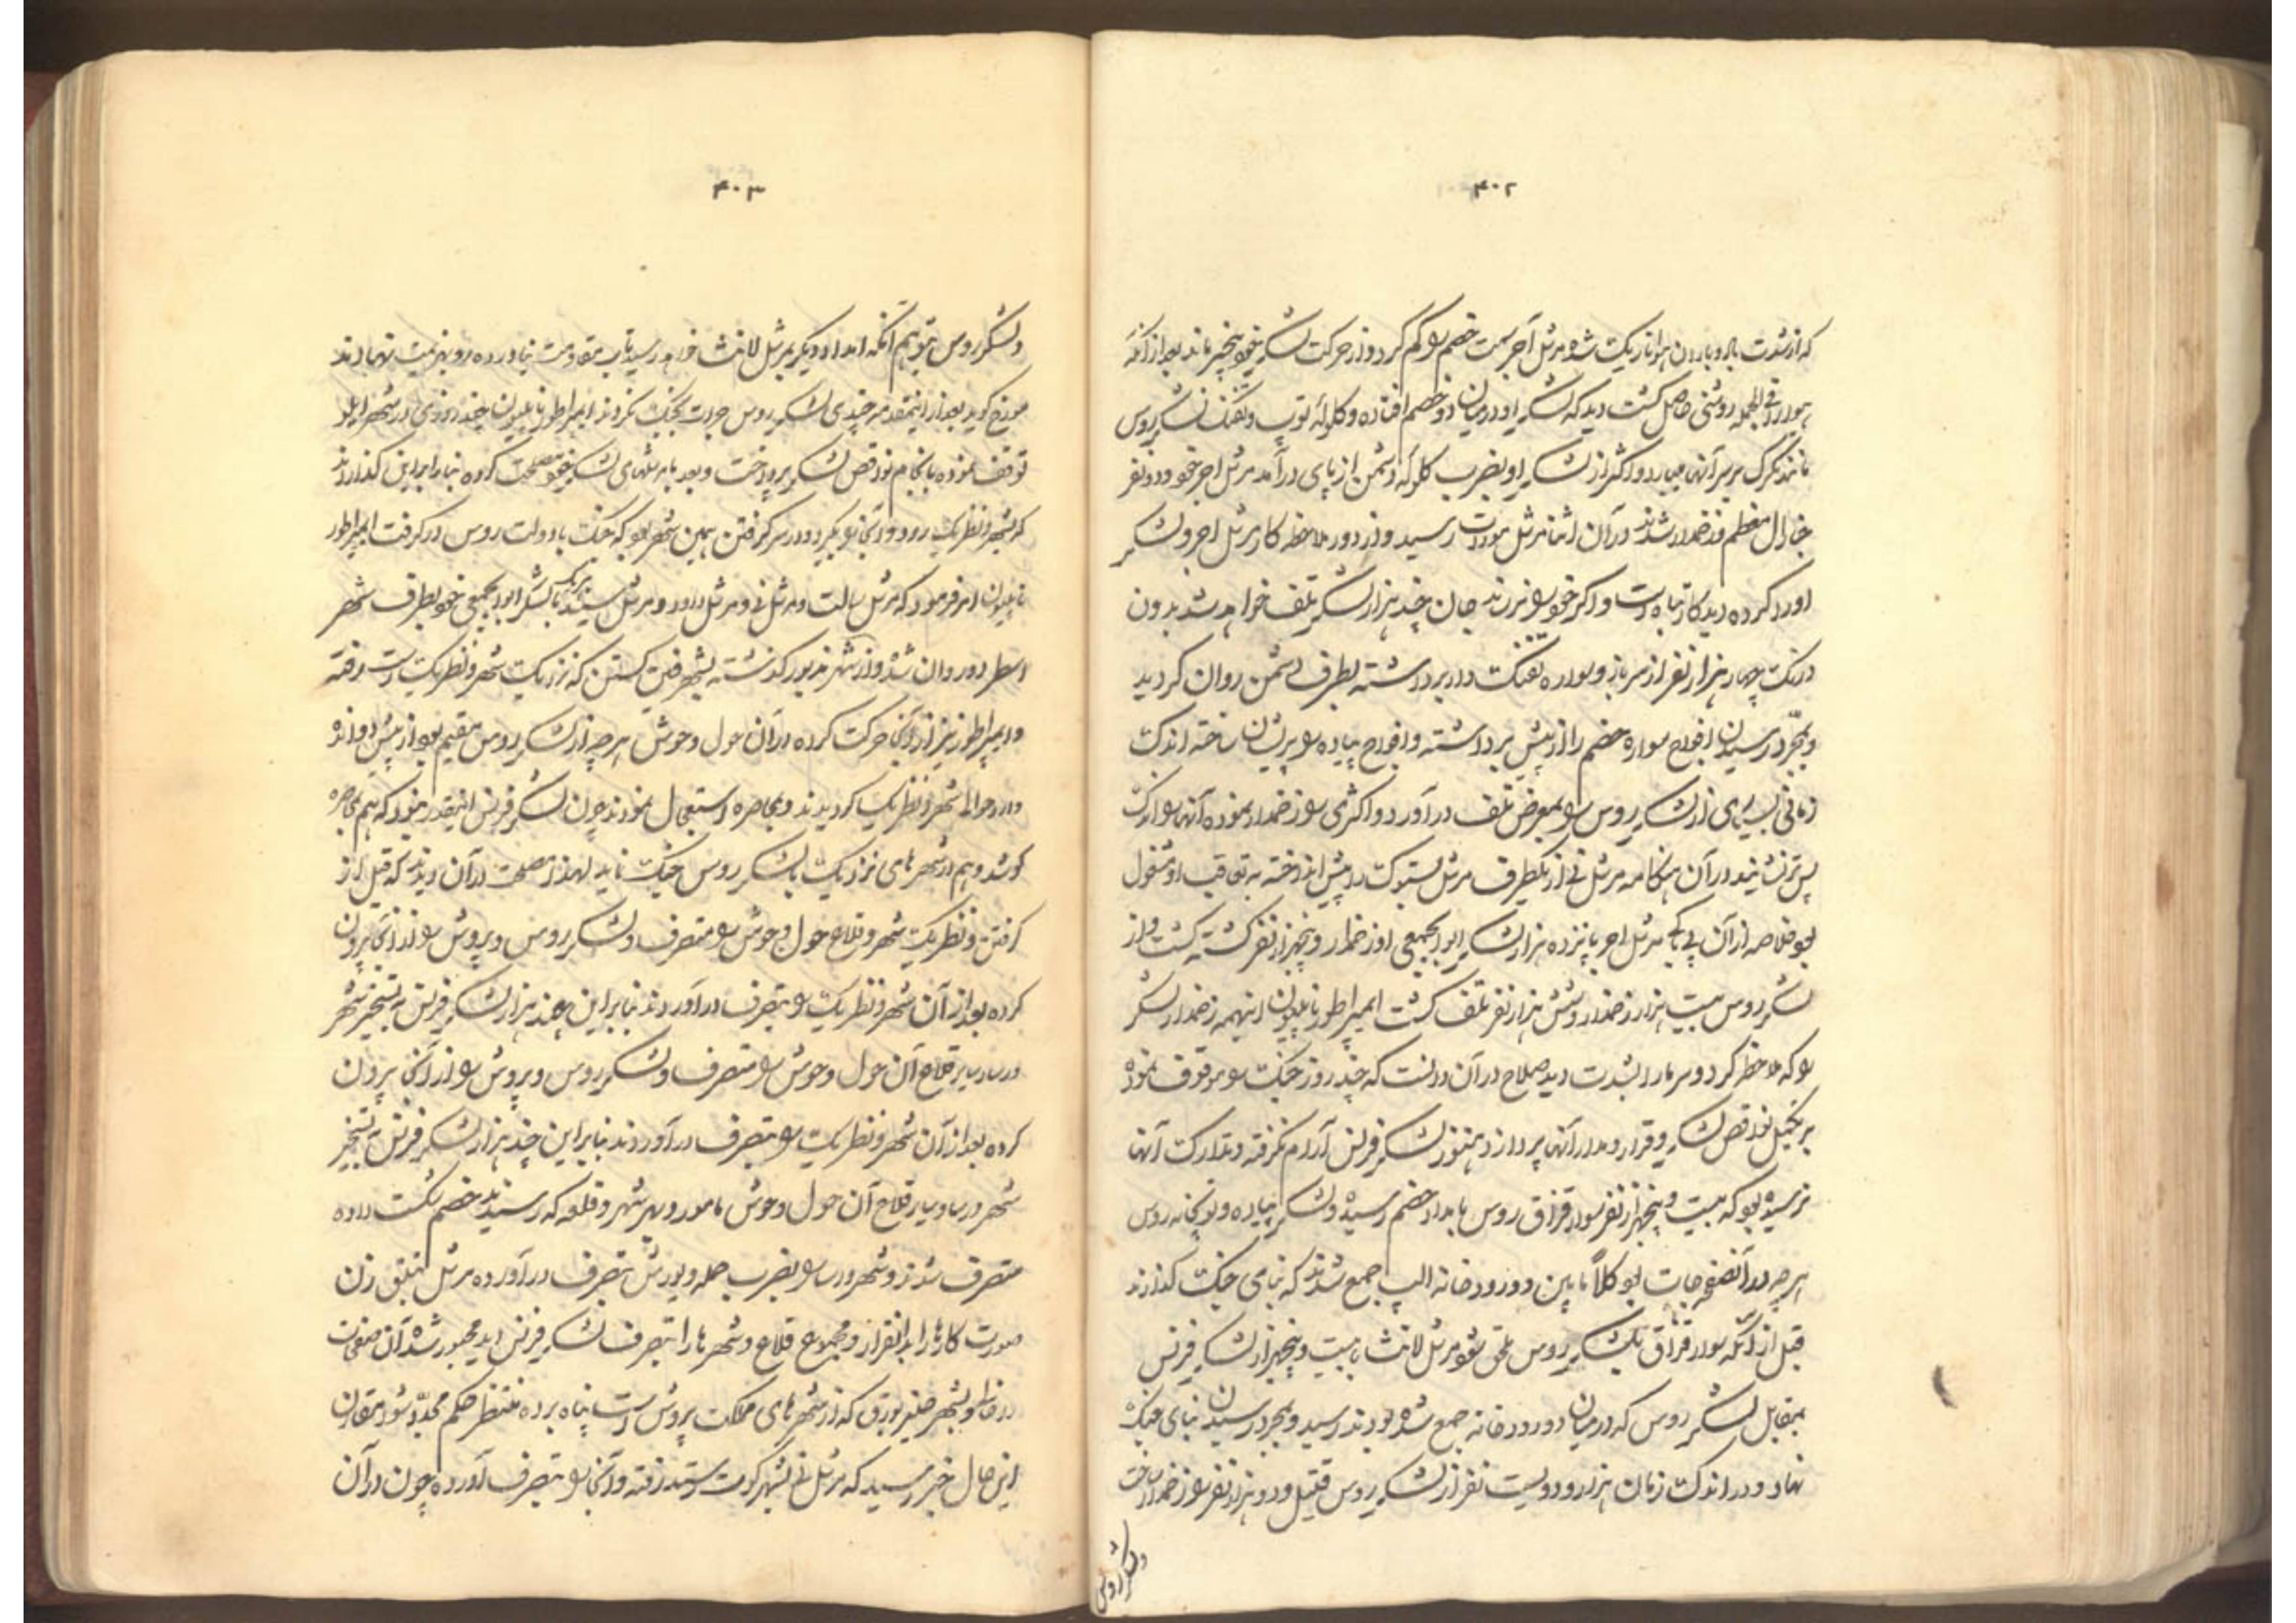 ۴۰۲
که از شدت باد و باران هوا تاریک شده مرشل آجر سمت خصم را گم کرد و از حرکت لشکر خود بیخبر ماند بعد از آنکه
هوا را فی الجمله روشنی حاصل گشت دید که لشکر او در میان دو خصم افتاده و گلوله توپ و تفنگ لشکر روس
مانند تگرگ بر سر آنها میبارد و اکثر از لشکر او بضرب گلوله دشمن از پای درآمد مرشل اجر خود و دو نفر
جنرال معظم زخمدار شدند در آن اثنا مرشل مورات رسید و از دور ملاحظه کار مرشل اجر و لشکر
او را کرده دید کار تباه است و اگر خود را نرساند جان چند هزار لشکر تلف خواهد شد بدون
درنگ چهار هزار نفر از سرباز و سواره تفنگ دار برداشته بطرف دشمن روان گردید
و بمجرد رسیدن افواج سواره خصم را از پیش برداشته و افواج پیاده را پریشان ساخته اندک
زمانی بسیاری از لشکر روس را بمعرض تلف در آورد و اکثری را زخمدار نموده آنها را اندک
پس تر نشانید در آن هنگامه مرشل نی از یکطرف مرشل لستوک را پیش انداخته به تعاقب او مشغول
بود خلاصه از آن مرشل اجر پانزده هزار لشکر ابوابجمعی او زخمدار و پنجهزار نفر کشته گشت و از
لشکر روس بیست هزار زخمدار و شش هزار نفر تلف گشت امپراطور ناپلیون اینهمه زخمدار لشکر
را که ملاحظه کرد و سرما را بشدت دید صلاح در آن دانست که چند روز جنگ را موقوف نموده
بر تکمیل نواقص لشکر و قرار و مدار آنها پردازد هنوز لشکر فرنس آرام نگرفته و تدارک آنها
نرسیده بود که بیست و پنجهزار نفر سوار قزاق روس بامداد خصم رسیده و لشکر پیاده و توپخانه روس
هر چه در آنصفحات بود کلاً مابین دو رودخانه الپ جمع شدند که بنای جنگ گذارند
قبل از آنکه سوار قزاق بلشکر روس ملحق شود مرشل لانث با بیست و پنجهزار لشکر فرنس
بمقابل لشکر روس که در میان دو رودخانه جمع شده بودند رسید و بمجرد رسیدن بنای جنگ
نهاد و در اندک زمان هزار و دویست نفر از لشکر روس قتیل و دو هزار نفر را زخمدار ساخت
ولشکر روس
۴۰۳
ولشکر روس بتوهم آنکه امداد دیگر بمرشل لانث خواهد رسید تاب مقاومت نیاورده رو بهزیمت نهادند
مورخ گوید بعد از اینمقدمه چندی لشکر روس جرات بجنگ نکردند امپراطور ناپلیون چند روزی در شهر ایلو
توقف نموده بانجام نواقص لشکر پرداخت و بعد با مرشلهای لشکر خود مصلحت کرده بنا را بر این گذاردند
که بشهر دنظریک رود و آنجا را بگیرد و در سر گرفتن همین شهر بود که جنگ با دولت روس در گرفت امپراطور
ناپلیون امر فرمود که مرشل سالت و مرشل نی و مرشل داود و مرشل با لشکر ابوابجمعی خود بطرف شهر
اسطردور روان شده و از شهر مذبور گذشته بشهر کستن که نزدیک شهر دنظریک است رفته
و امپراطور نیز از آنجا حرکت کرده در آن حول و حوش هر چه از لشکر روس مقیم بود از پیش دوانده
وارد حوالی شهر دنظریک گردیدند و بمحاصره استعجال نمودند چون لشکر فرنس اینقدر نبود که هم بمحاصره
کوشد و هم در شهرهای نزدیک بلشکر روس جنگ نماید لهذا مصلحت در آن دیدند که قبل از
گرفتن دنظریک شهر و قلاع حول و حوش را متصرف و لشکر روس و پروش را از آنجا بیرون
کرده بعد از آن شهر دنظریک را بتصرف درآوردند بنا بر این چند هزار لشکر فرنس به تسخیر شهر
ورسا و سایر قلاع آن حول و حوش را متصرف و لشکر روس و پروش را از آنجا بیرون
کرده بعد از آن شهر دنظریک را بتصرف در آوردند بنا بر این چند هزار لشکر فرنس به تسخیر
شهر ورسا و سایر قلاع آن حول و حوش مامور و بهر شهر و قلعه که رسیدند خصم را شکست داده
متصرف شدند و شهر ورسا را بضرب حمله و یورش بتصرف در آورده مرشل
صورت کارها را بدانقرار و مجموع قلاع و شهرها را بتصرف لشکر فرنس دید مجبور شده آن صفحات
بشهر که از شهرهای مملکت پروش است پناه برده منتظر حکم مجدد شد مقارن
این حال خبر رسید که مرشل نی بشهر گوت ستد رفته و آنجا را بتصرف آورده چون در آن